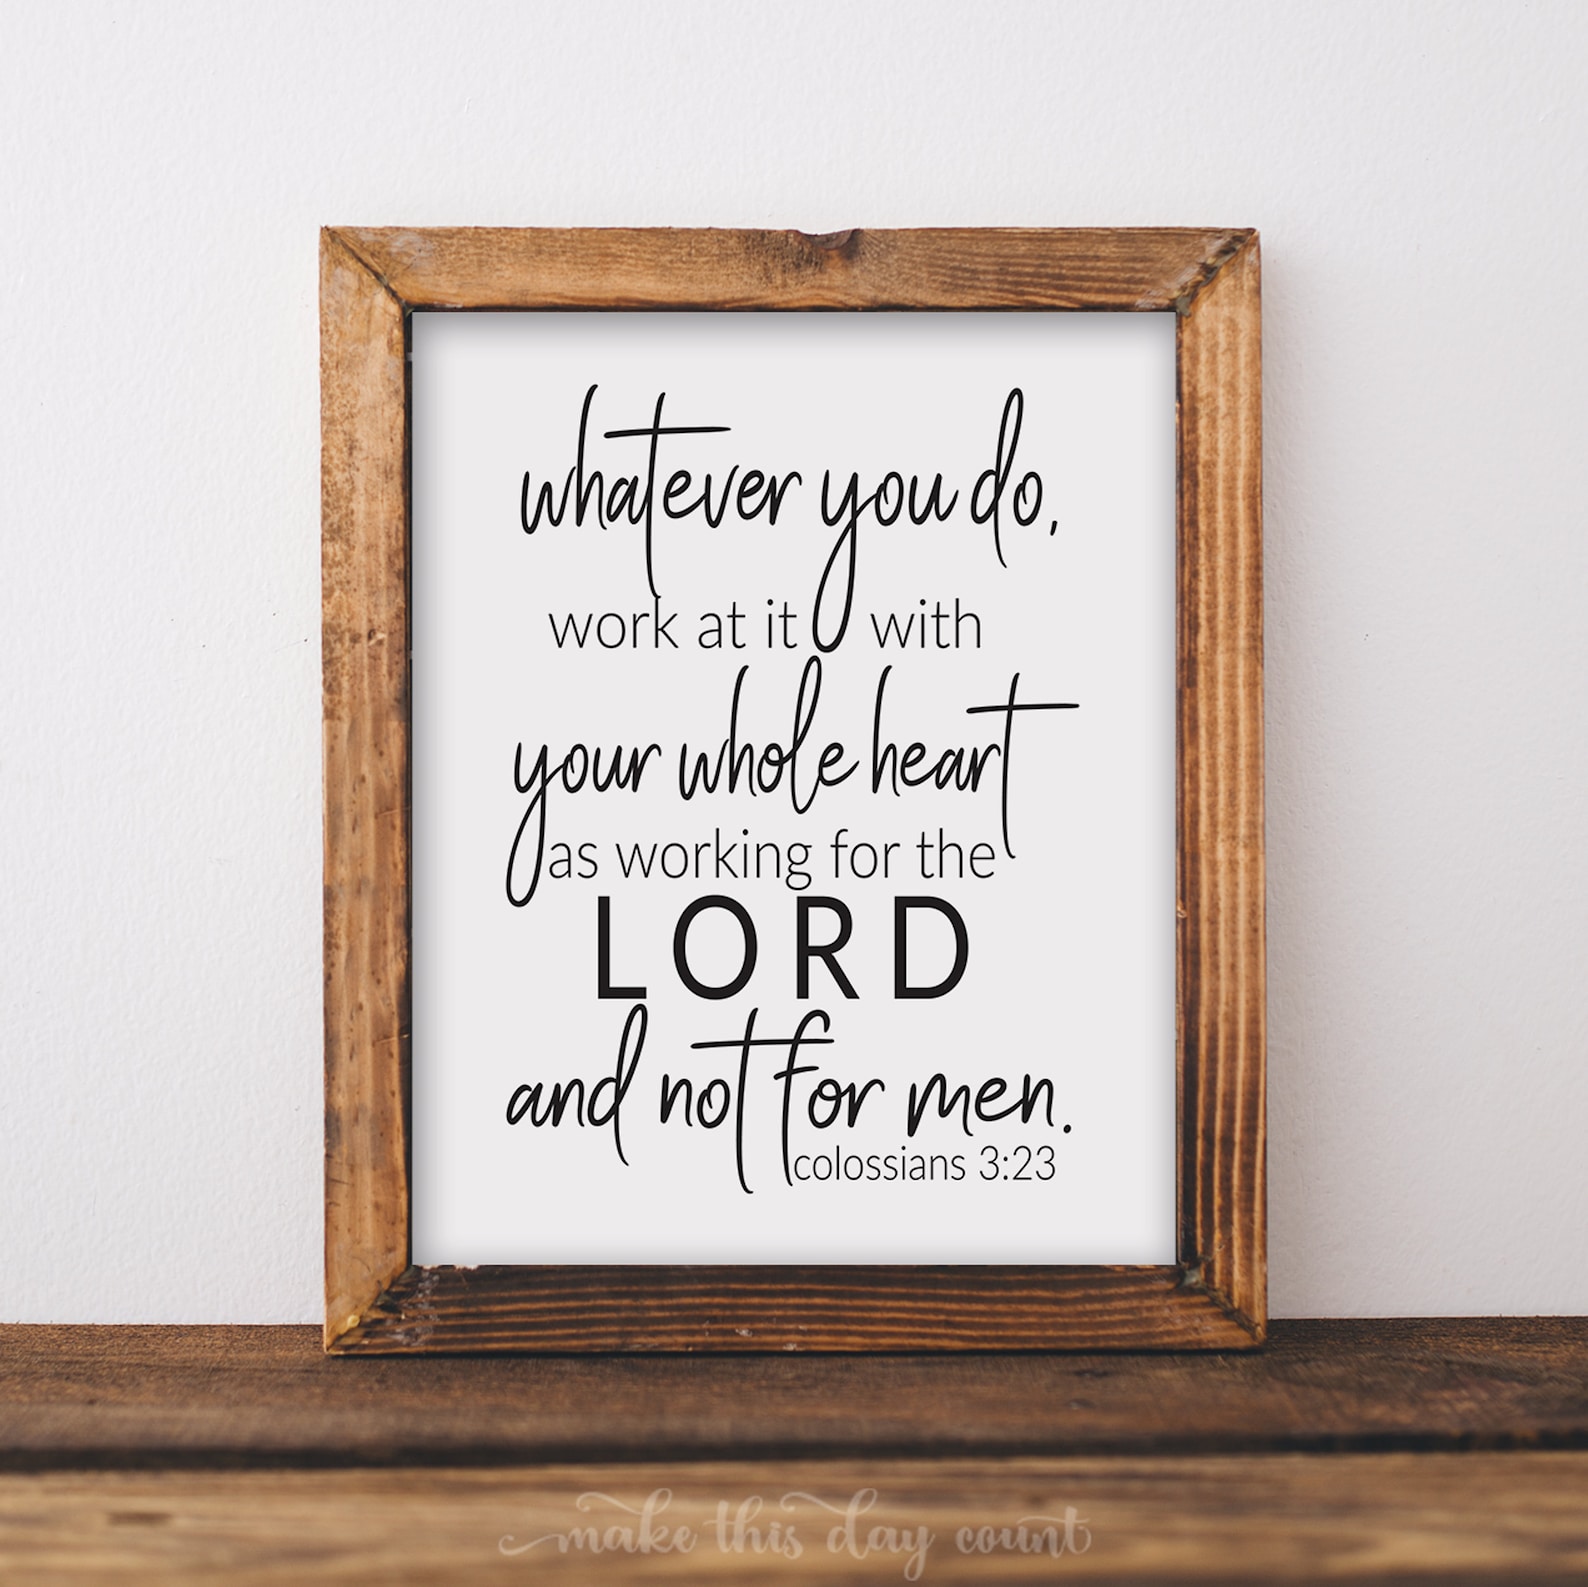 whatever you do,
work at it with
your whole heart
as working for the
LORD
and not for men.
colossians 3:23
make this day count